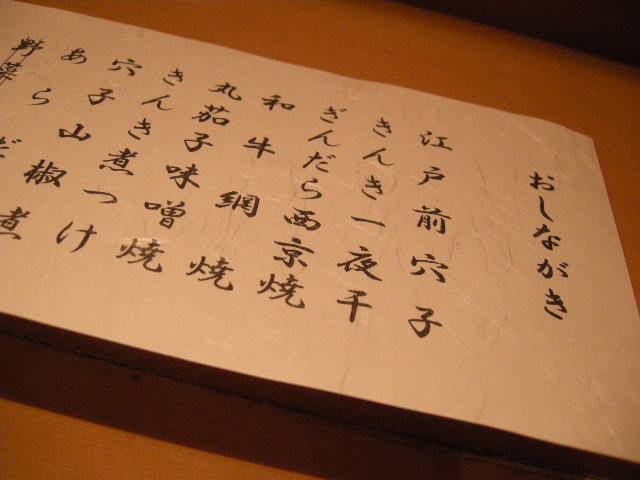 おしながき
江戸前穴子
きんき一夜干
ぎんだら西京焼
和牛網焼
丸茄子味噌焼
きんき煮つけ
穴子山椒煮
あらだ
野菜